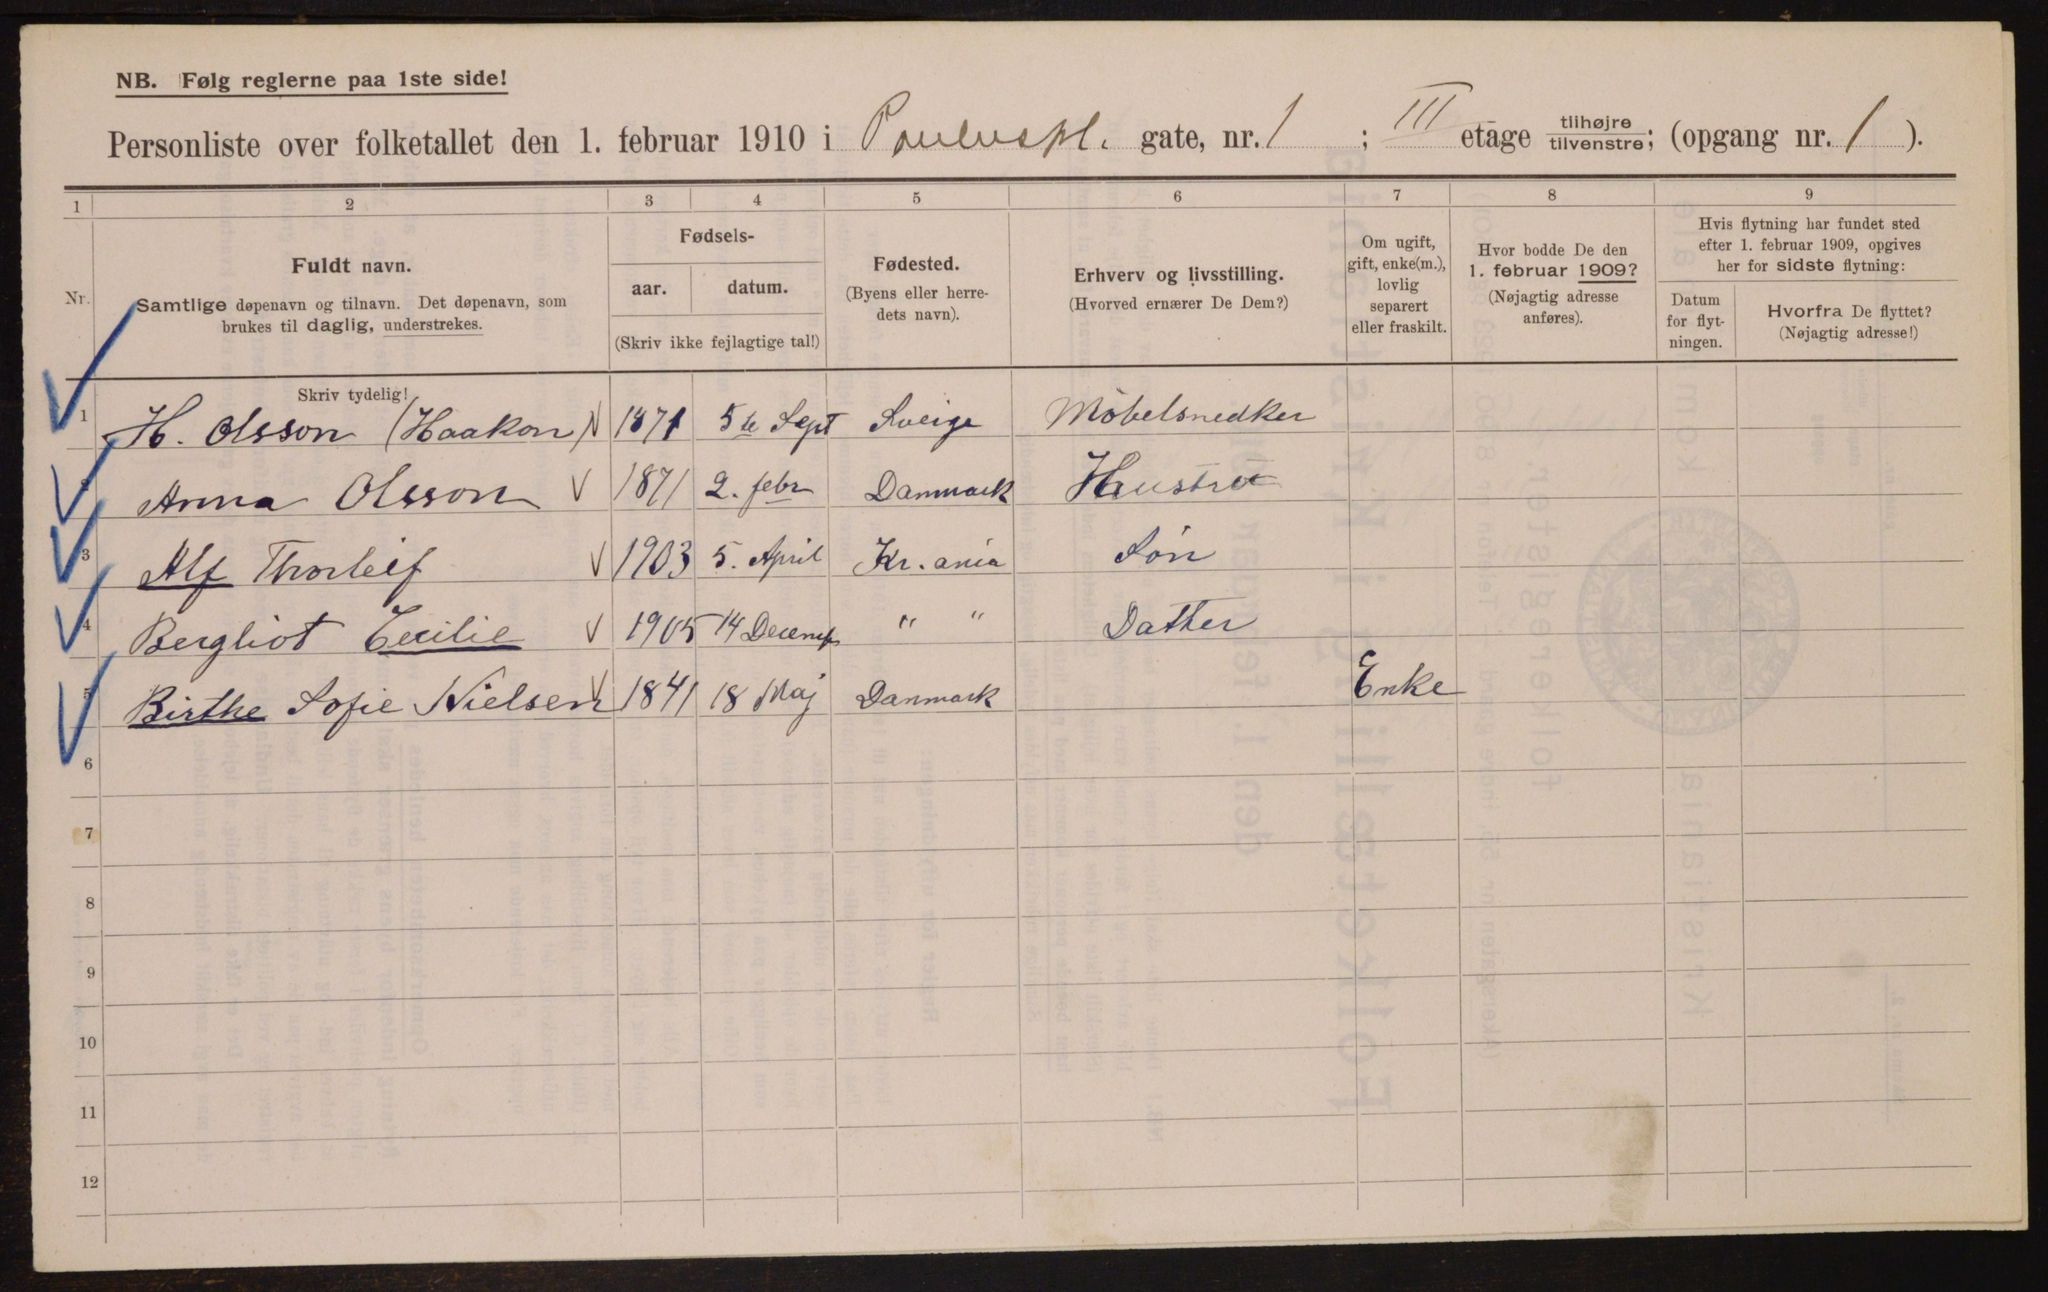 NB. Følg reglerne paa 1ste side!
Personliste over folketallet den 1. februar 1910 i Pauluspl. gate, nr. 1 ; III etage tilhøjre/tilvenstre; (opgang nr. 1 ).
1 2 3 4 5 6 7 8 9
Nr.
Fuldt navn.
Samtlige døpenavn og tilnavn. Det døpenavn, som
brukes til daglig, understrekes.
Skriv tydelig!
Fødsels-
aar. datum.
(Skriv ikke fejlagtige tal!)
Fødested.
(Byens eller herre-
dets navn).
Erhverv og livsstilling.
(Hvorved ernærer De Dem?)
Om ugift,
gift, enke(m.),
lovlig
separert
eller fraskilt.
Hvor bodde De den
1. februar 1909?
(Nøjagtig adresse
anføres).
Hvis flytning har fundet sted
efter 1. februar 1909, opgives
her for sidste flytning:
Datum
for flyt-
ningen.
Hvorfra De flyttet?
(Nøjagtig adresse!)
1 H. Olsson (Haakon) 1871 5te Sept Sveige Möbelsnedker
2 Anna Olsson 1871 2. febr Danmark Hustru
3 Alf Thorleif 1903 5. April Kr.ania Søn
4 Bergliot Cecilie 1905 14 Decemb " " Datter
5 Birthe Sofie Nielsen 1841 18 Maj Danmark Enke
6
7
8
9
10
11
12